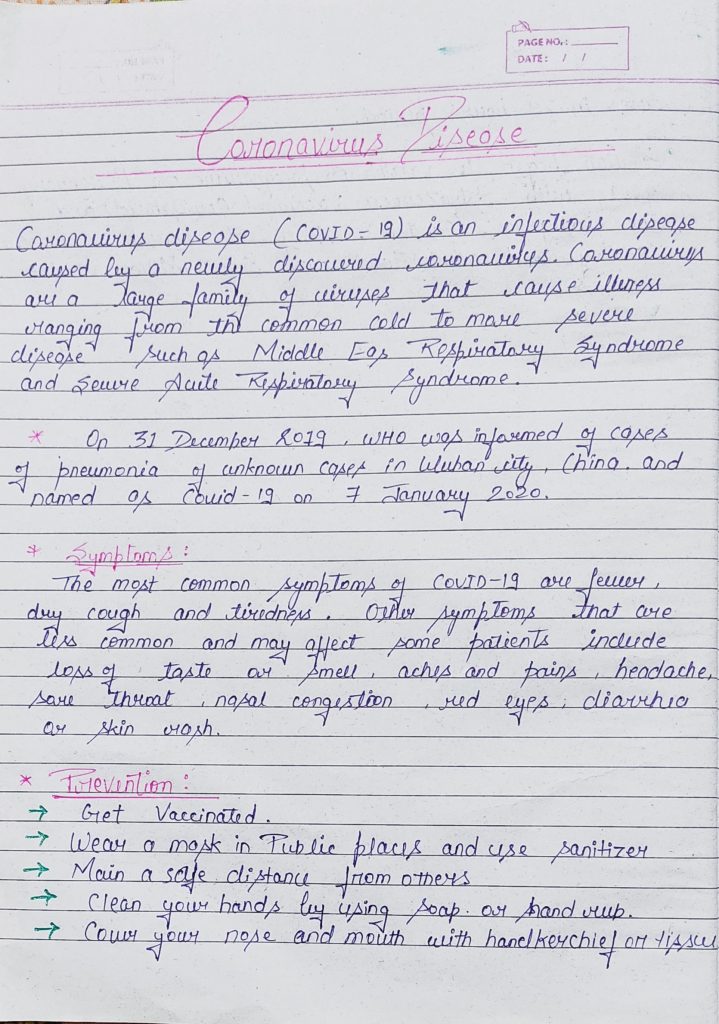 PAGE NO.:
DATE: / /
Coronavirus Disease
Coronavirus disease (COVID-19) is an infectious disease
caused by a newly discovered coronavirus. Coronavirus
are a large family of viruses that cause illness
ranging from the common cold to more severe
disease such as Middle Eas Respiratory Syndrome
and Severe Acute Respiratory Syndrome.
* On 31 December 2019, WHO was informed of cases
of pneumonia of unknown cases in Wuhan city, China. and
named as Covid-19 on 7 January 2020.
* Symptoms:
The most common symptoms of COVID-19 are fever,
dry cough and tiredness. Other symptoms that are
less common and may affect some patients include
loss of taste or smell, aches and pains, headache,
sore throat, nasal congestion, red eyes, diarrhia
or skin rash.
* Prevention:
→ Get Vaccinated.
→ Wear a mask in Public places and use sanitizer
→ Main a safe distance from others
→ Clean your hands by using soap. or hand rub.
→ Cover your nose and mouth with handkerchief or tissue